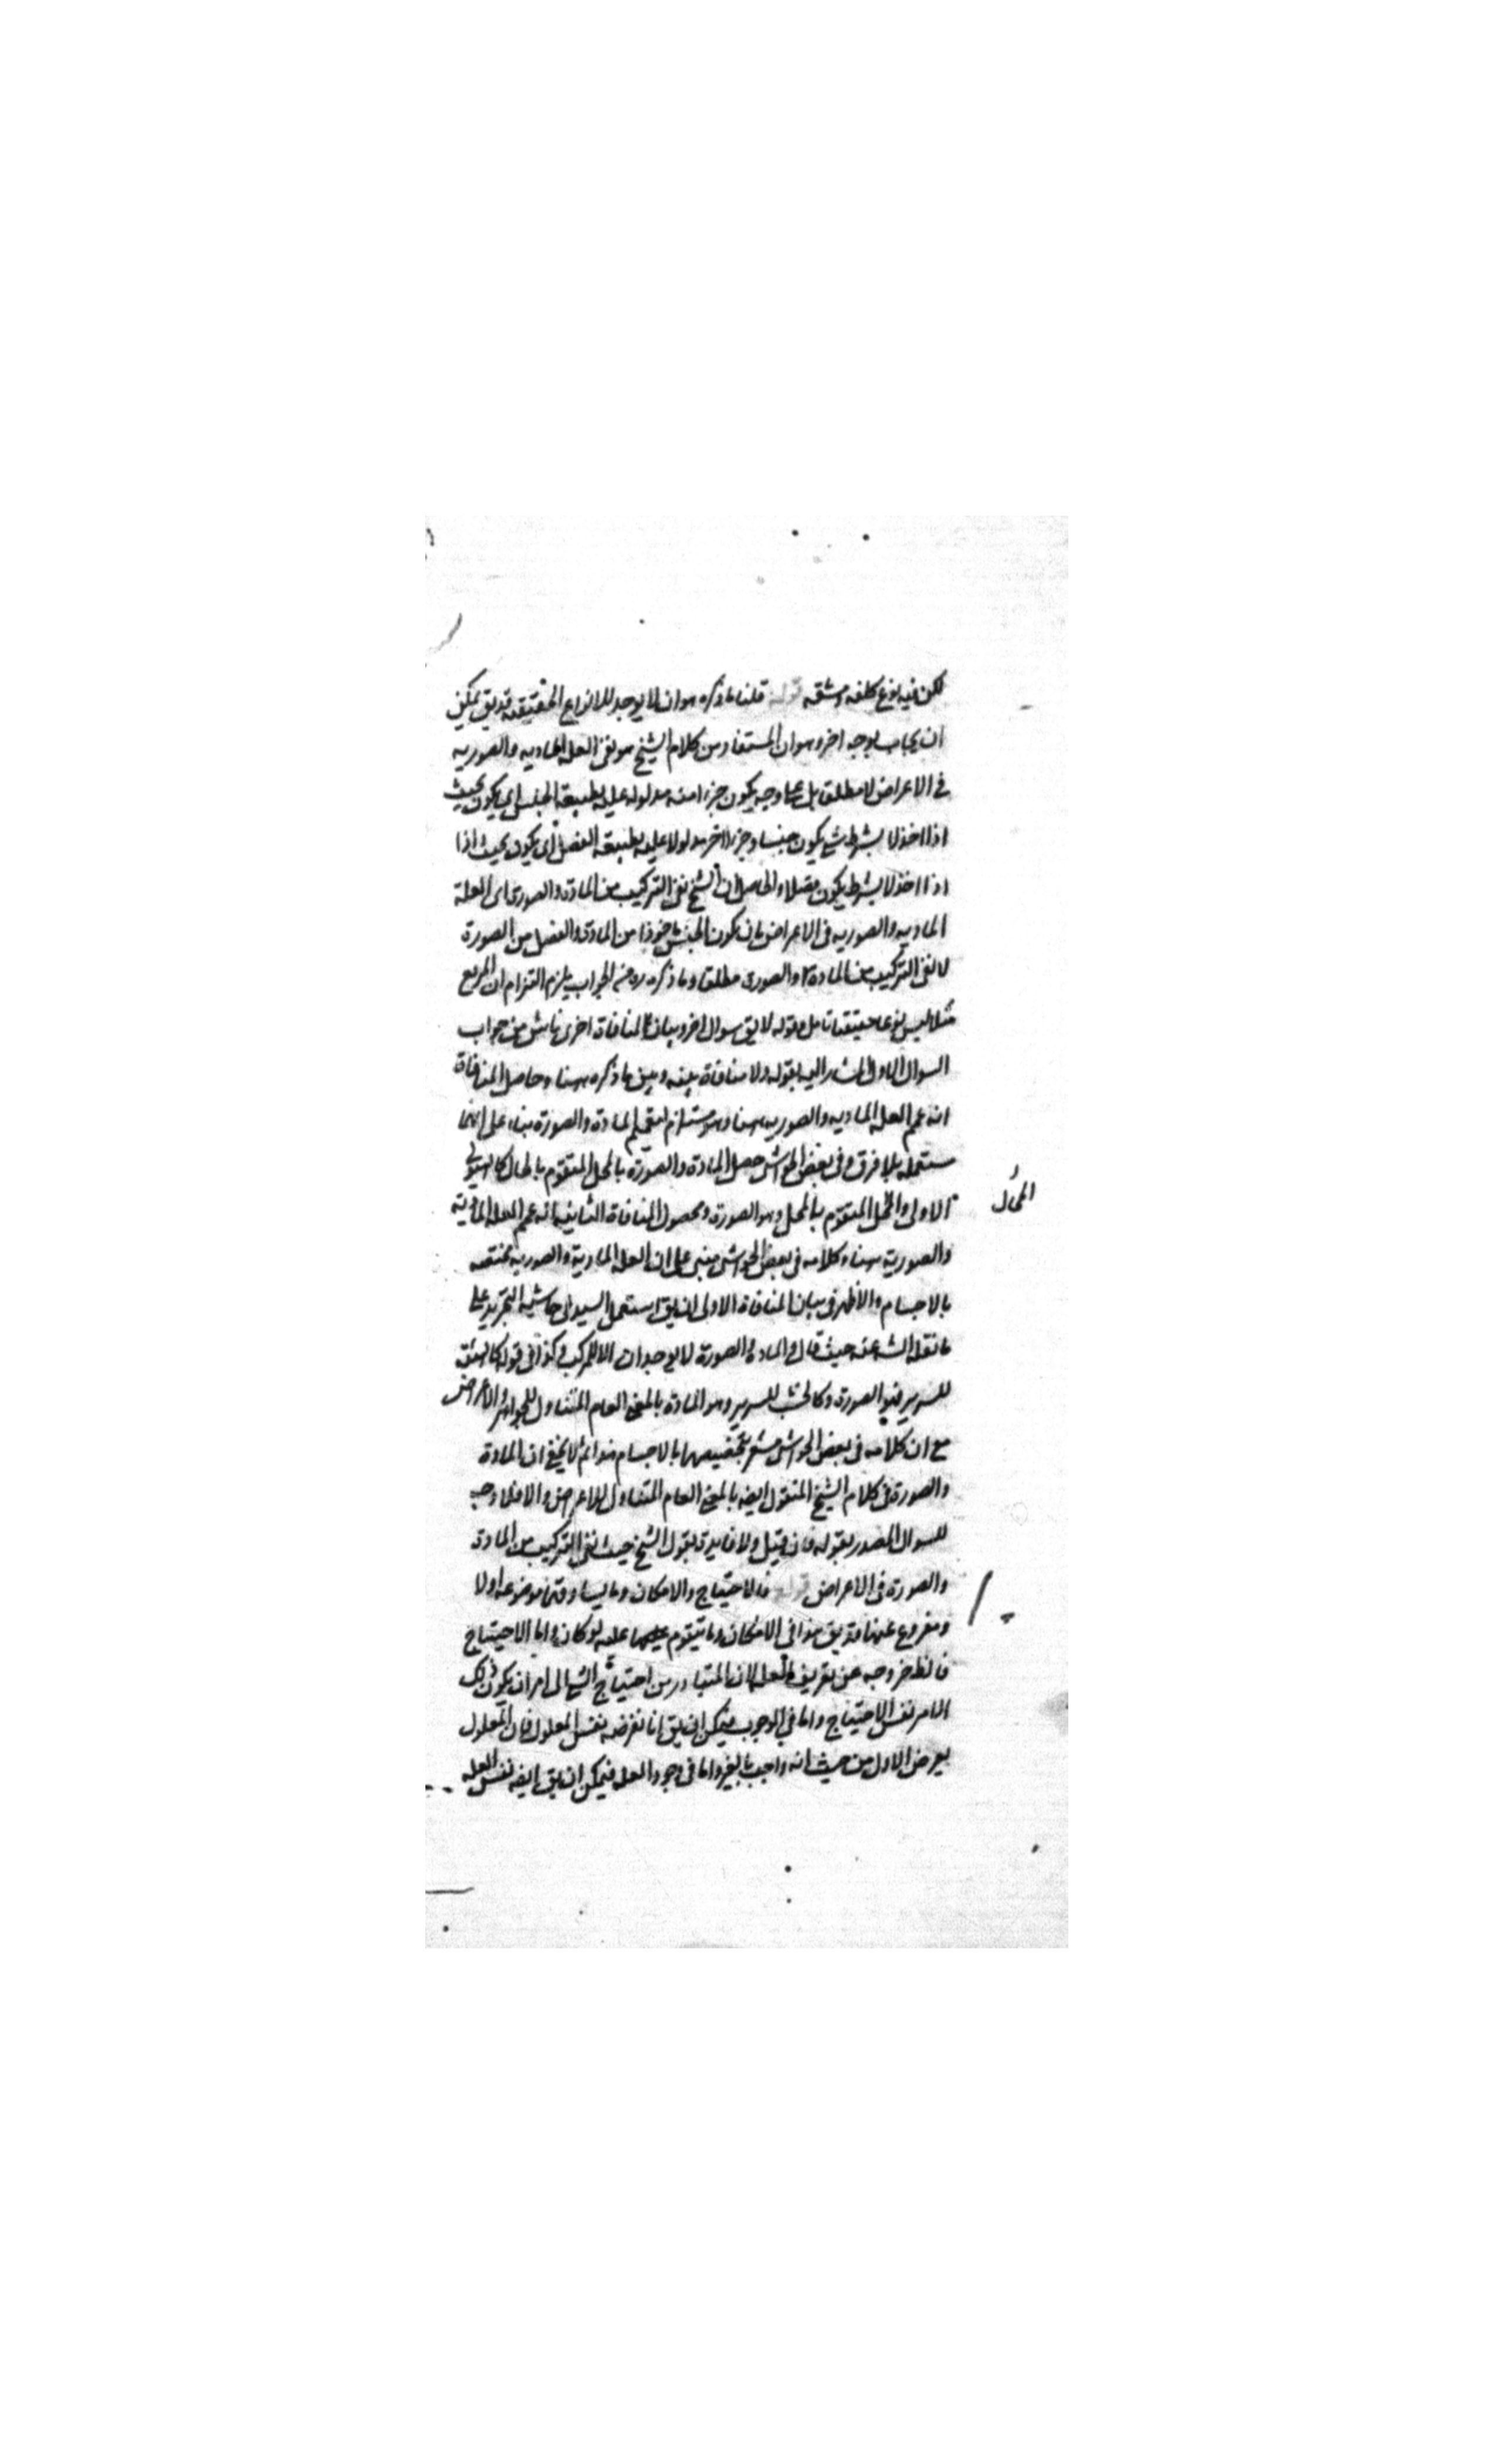 لكن فيه نوع كلفه ومشقه قوله قلنا ما ذكره هو ان لا يوجد للانواع الحقيقيه قد يق يمكن
ان يجاب بوجه اخر وهو ان المستفاد من كلام الشيخ هو نفى العله الماديه والصوريه
فى الاعراض لا مطلقا بل على وجه يكون جزء امنه مدلوله عليه بطبيعة الجنس اى يكون بحيث
اذا اخذ لا بشرط شئ يكون جنسا وجزء اخر مدلولا عليه بطبيعة الفصل اى يكون بحيث اذا
اذا اخذ لا بشرط يكون فصلا والحاصل ان الشيخ نفى التركيب من المادة والصورة اى العلة
الماديه والصوريه فى الاعراض بان يكون الجنس ماخوذا من المادة والفصل من الصورة
لا نفى التركيب من المادة والصورة مطلقا وما ذكره من الجواب يلزم التزام ان المربع
مثلا ليس نوعا حقيقيا تامل قوله لا يق سوال اخر وبيان لمنافاة اخرى ناش من جواب
السوال الاول المشار اليه بقوله ولا منافاة بينه وبين ما ذكره هنا وحاصل المنافاة
انه عمم العله الماديه والصوريه هنا وهو مستلزم لتعميم المادة والصورة بناء على انهما
مستعمله بلا فرق وفى بعض الحواشى خصل المادة والصورة بالمحل المتقوم بالحال كالهيولى
الاولى والحال المتقوم بالمحل وهو الصورة ومحصول المنافاة الثانيه انه عمم العله الماديه
المحال
والصوريه هنا وكلامه فى بعض الحواشى مبنى على ان العله الماديه والصوريه مختصه
بالاجسام والاظهر فى بيان المنافاة الاولى ان يق استعمل السيد فى حاشيه التجريد على
ما نقله الشه عنه حيث قال والمادة والصورة لا يوجدان الا للمركب وكذا فى قوله كالهيئه
للسرير فهو الصورة وكالخشب للسرير وهو المادة بالمعنى العام المتناول للجواهر والاعراض
مع ان كلامه فى بعض الحواشى مشعر بتخصيصها بالاجسام هذا ثم لا يخفى ان المادة
والصورة فى كلام الشيخ المنقول ايضه بالمعنى العام المتناول للاعراض والا فلا وجه
للسوال المصدر بقوله فان قيل ولا فايدة بقول الشيخ حيث نفى التركيب من المادة
والصورة فى الاعراض قوله فالاحتياج والامكان وما يساوقها موضوعه اولا
ومفروع عنها قد يق هذا فى الامكان وما يتقوم عليها عله لو كان واما الاحتياج
فالظ خروجه عن تعريف العله لان المتبادر من احتياج الشئ الى امر ان يكون ذلك
الامر نفس الاحتياج واما فى الوجوب فيمكن ان يق انا نفرضه نفس المعلول فان المعلول
بعرض الاول من حيث انه واجب بالغير واما فى وجود العله فيمكن ان يق ايضه نفس العله